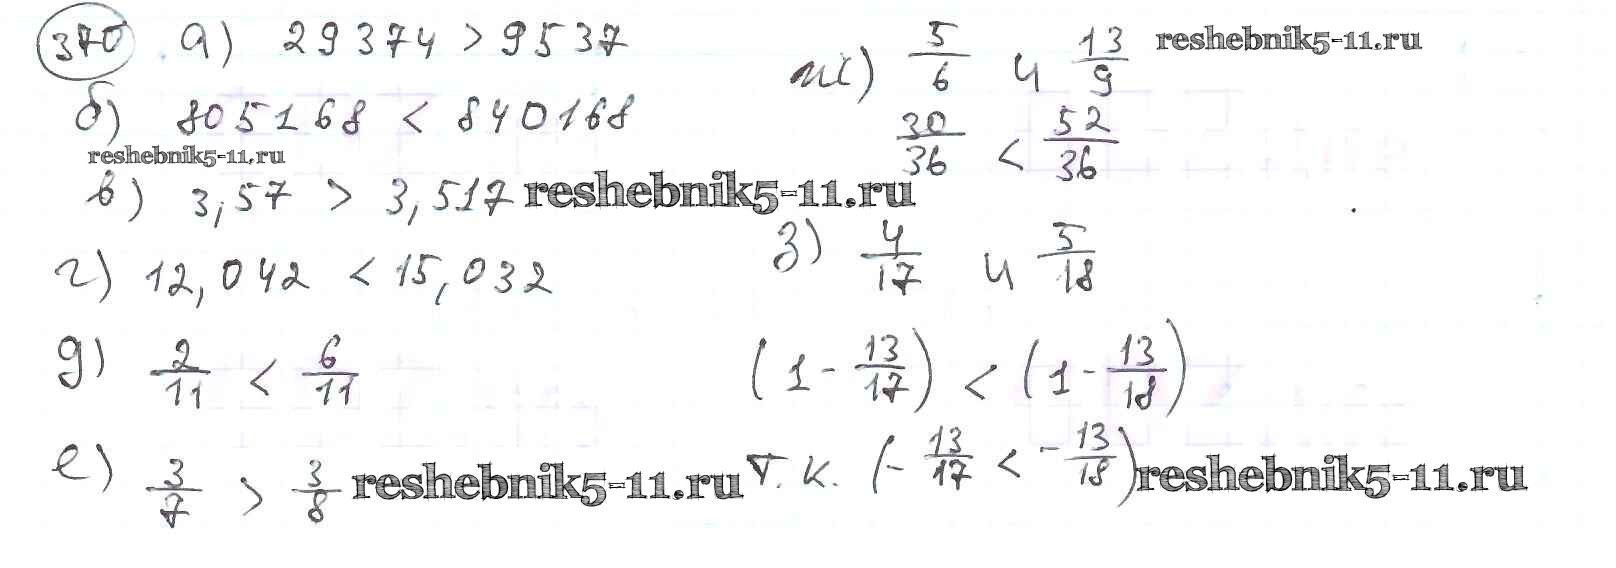 370 а) 29374 > 9537
б) 805168 < 840168
reshebnik5-11.ru
в) 3,57 > 3,517 reshebnik5-11.ru
г) 12,042 < 15,032
д) 2/11 < 6/11
е) 3/7 > 3/8 reshebnik5-11.ru
ж) 5/6 и 13/9 reshebnik5-11.ru
30/36 < 52/36
з) 4/17 и 5/18
(1 - 13/17) < (1 - 13/18)
т.к. (- 13/17 < - 13/18) reshebnik5-11.ru